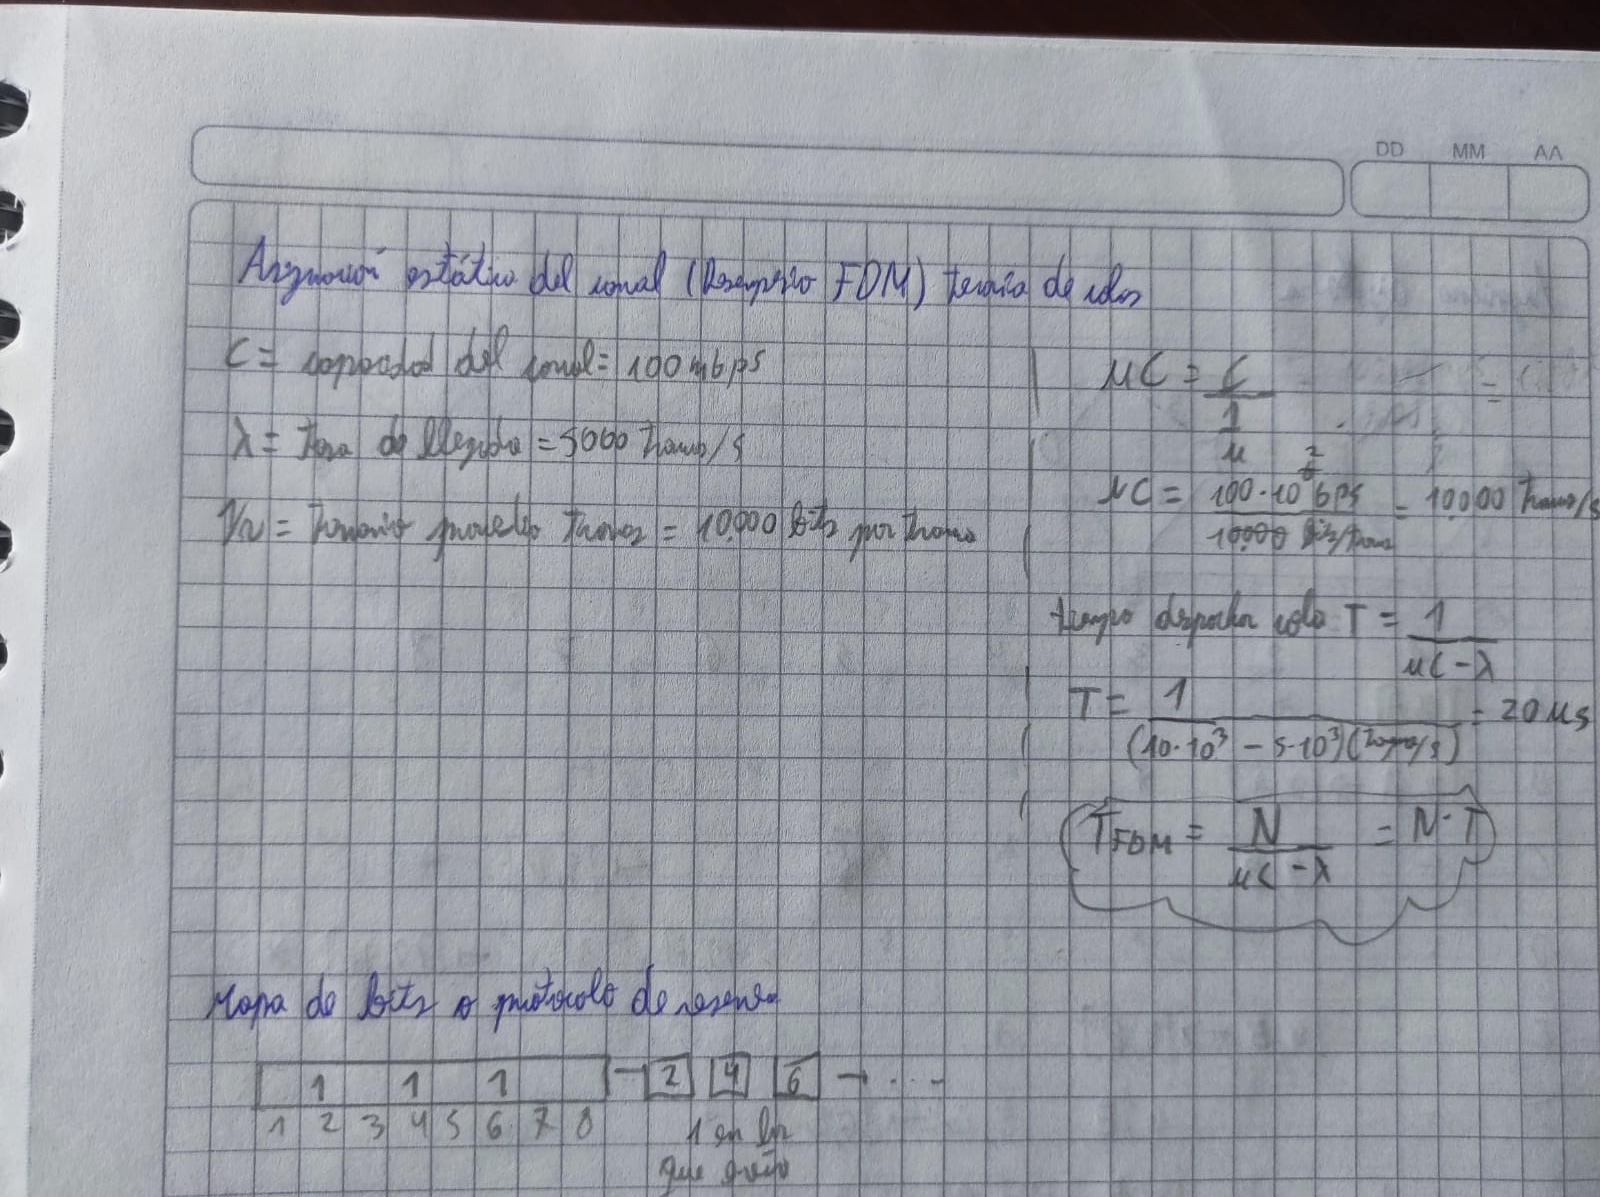 DD MM AA
Asignación estático del canal (Desempeño FDM) teoria de colas
C = capacidad del canal = 100 mbps
λ = tasa de llegada = 5000 tramas/s
1/μ = tamaño promedio tramas = 10.000 bits por trama
μC = C / 1/μ =
μC = 100·10⁶ bps / 10000 bits/trama = 10.000 tramas/s
tiempo despachar cola T = 1 / μC - λ
T = 1 / (10·10³ - 5·10³)(tramas/s) = 20 μs
T FDM = N / μC - λ = N·T
Mapa de bits o protocolo de reserva
1 1 1 → 2 4 6 → ....
1 2 3 4 5 6 7 8
1 en los
que